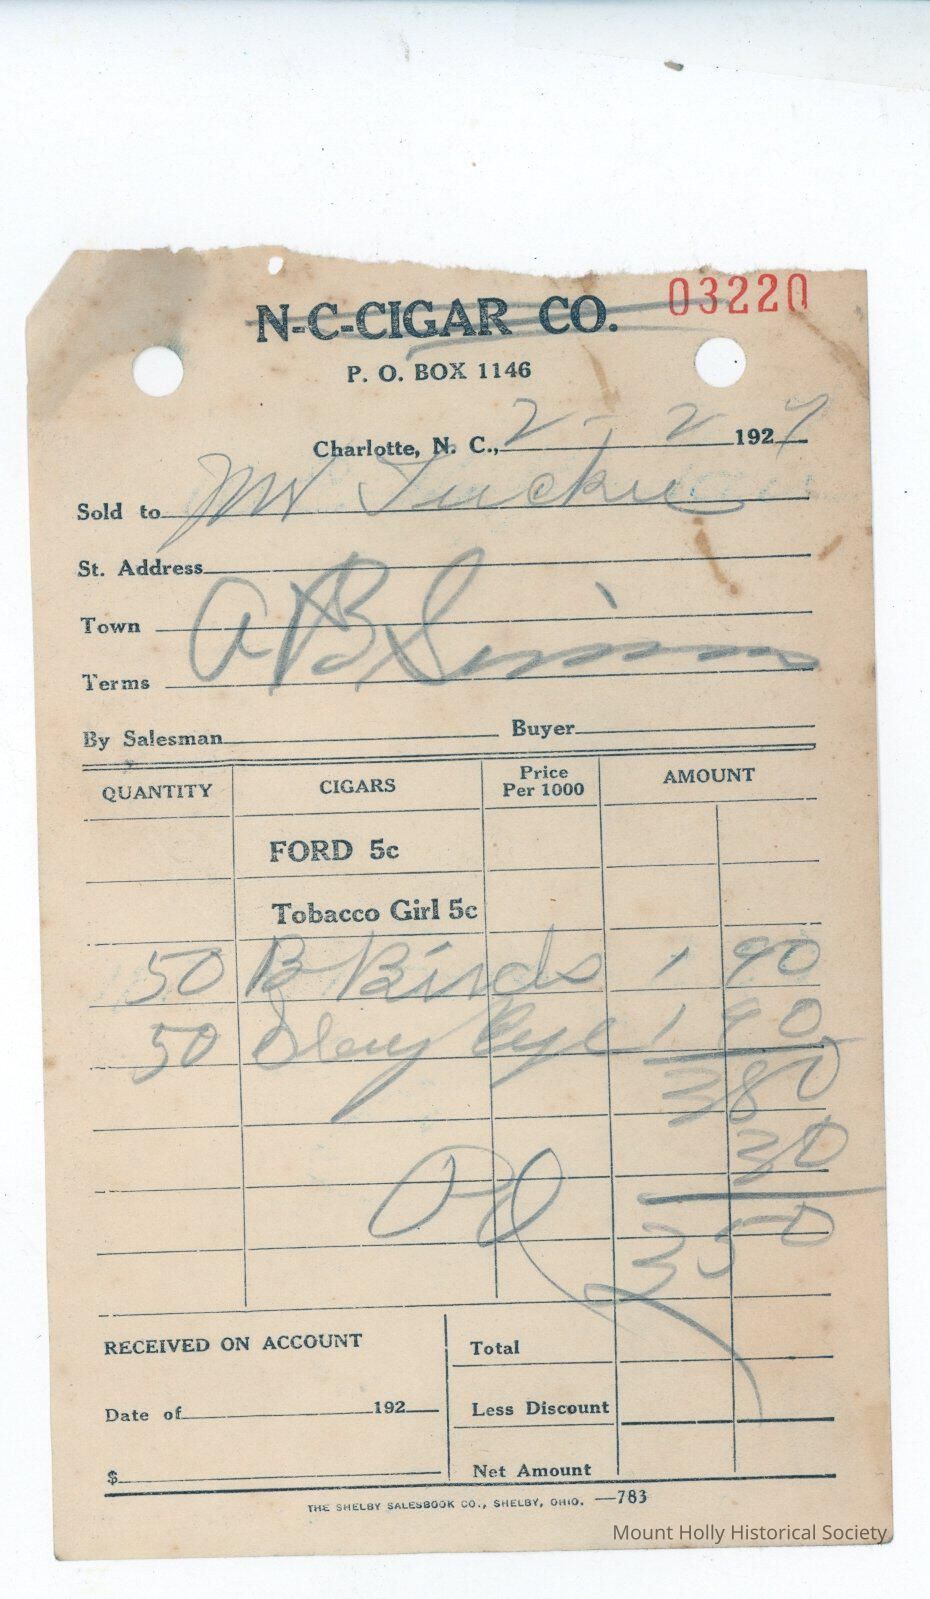 03220
N-C-CIGAR CO.
P. O. BOX 1146
Charlotte, N. C., 2-2 1927
Sold to Mr
St. Address
Town A B Simms
Terms
By Salesman Buyer
QUANTITY CIGARS Price Per 1000 AMOUNT
FORD 5c
Tobacco Girl 5c
50 B Birds 1 90
50 1 90
3 80
30
3 50
RECEIVED ON ACCOUNT Total
Date of 192 Less Discount
$ Net Amount
THE SHELBY SALESBOOK CO., SHELBY, OHIO. —783
Mount Holly Historical Society